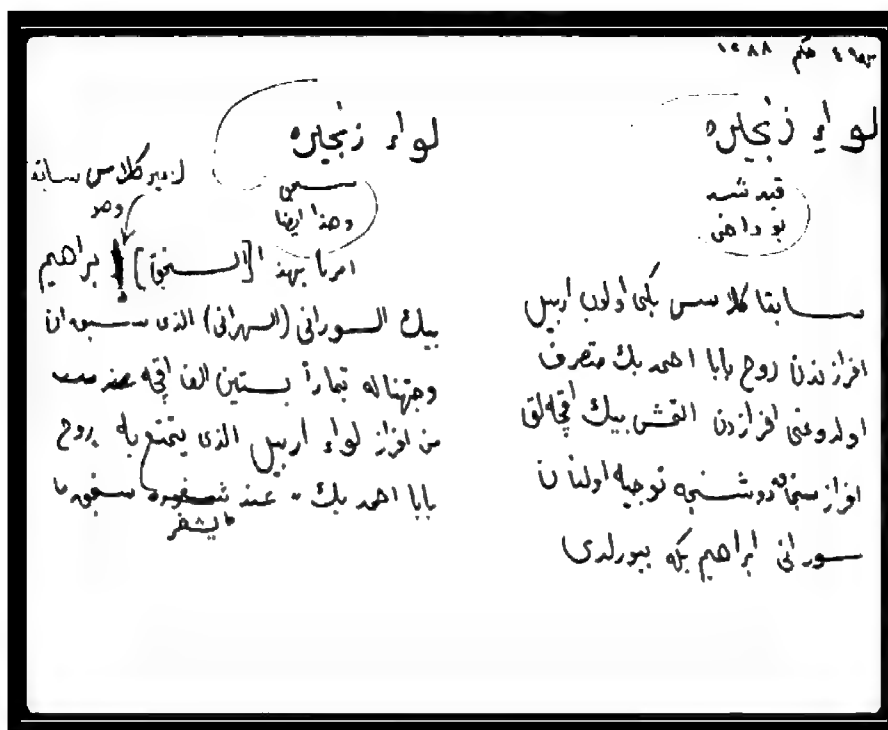 حكم ١٢٨٨
لواءِ زنجيره
قيد شد
بو داخى
سابقا كلاس بكى اولوب اربيل
افرازندن روح بابا احمد بك متصرف
اولدوغى افرازدن التمش بيك اقچه لق
افراز سنجاق دوشنجه توجيه اولنان
سورانى ابراهيم بكه بيورلدى
لواء زنجيره
سمى
وهذا ايضا
امير كلاس سابقا
وهو
امرنا بهذا [السنجق] ابراهيم
بيك السورانى (السهرانى) الذى سبق ان
وجهنا له تيماراً بستين الف اقچه
من افراز لواء اربيل الذى يتمتع به روح
بابا احمد بك، عند شغوره سنجق ما
يشغر